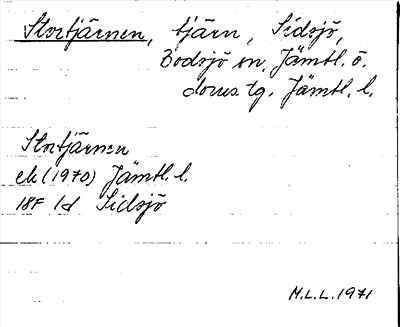 Stortjärnen, tjärn, Sidsjö,
Bodsjö sn. Jämtl. ö.
doms tg. Jämtl. l.
Stortjärnen
ek (1970) Jämtl. l.
18F 1d Sidsjö
M.L.L. 1971